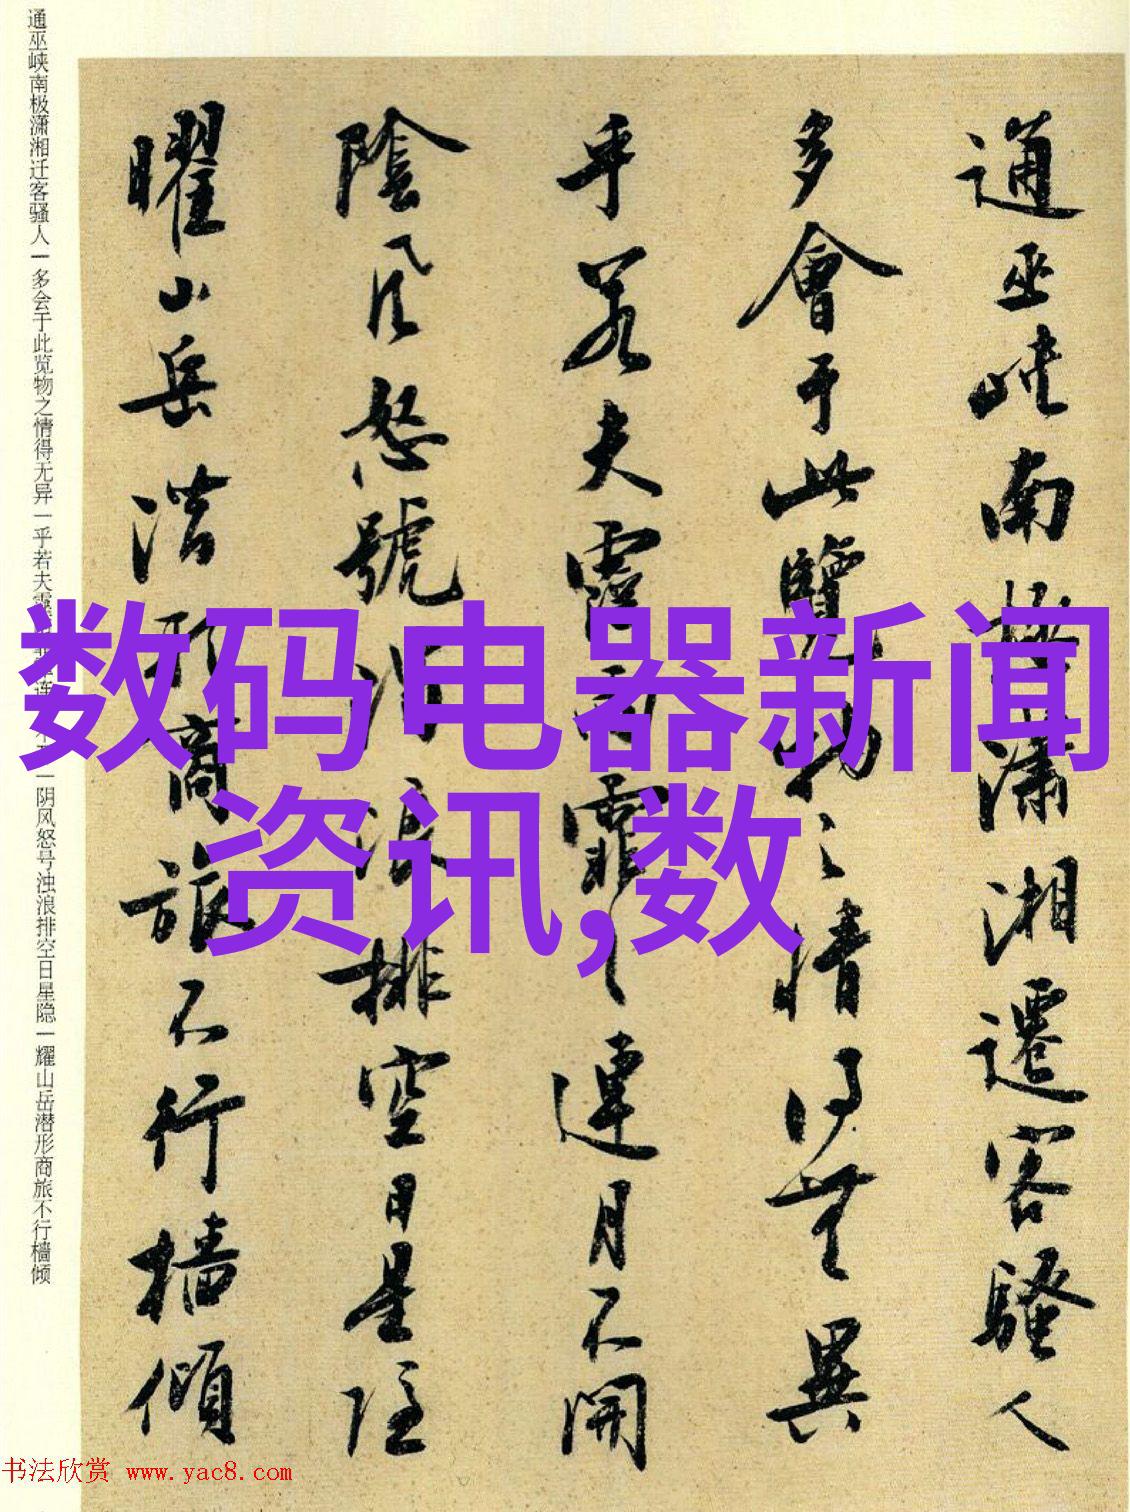 通巫峡南極潇湘遷客騷人
多會于此覽物之情得無異
乎若夫霪雨霏之連月不開
陰風怒號濁浪排空日星隱
曜山岳潜形商旅不行檣傾
通巫峡南极潇湘迁客骚人一多会于此览物之情得无异一乎若夫霪
连
一阴风怒号浊浪排空日星隐一耀山岳潜形商旅不行樯倾
数码电器新闻
资讯,数
书法欣赏 www.yac8.com